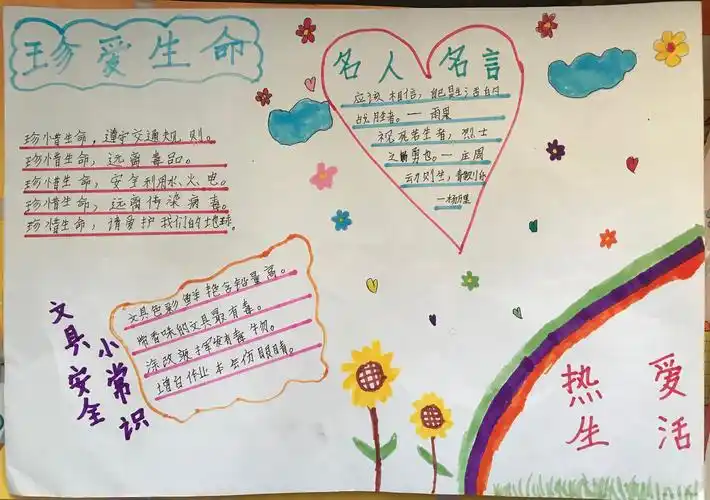 珍爱生命
珍惜生命，遵守交通规则。
珍惜生命，远离毒品。
珍惜生命，安全利用水火电。
珍惜生命，远离传染病毒。
珍惜生命，请爱护我们的地球。
名人名言
应该相信，自己是生活的
战胜者。一雨果
视死若生者，烈士
之勇也。一庄周
动则生，静则
文具安全
小常识
文具色彩鲜艳含铅量高。
带香味的文具最有毒。
涂改液挥发有毒物。
增白作业本会伤眼睛。
热爱
生活